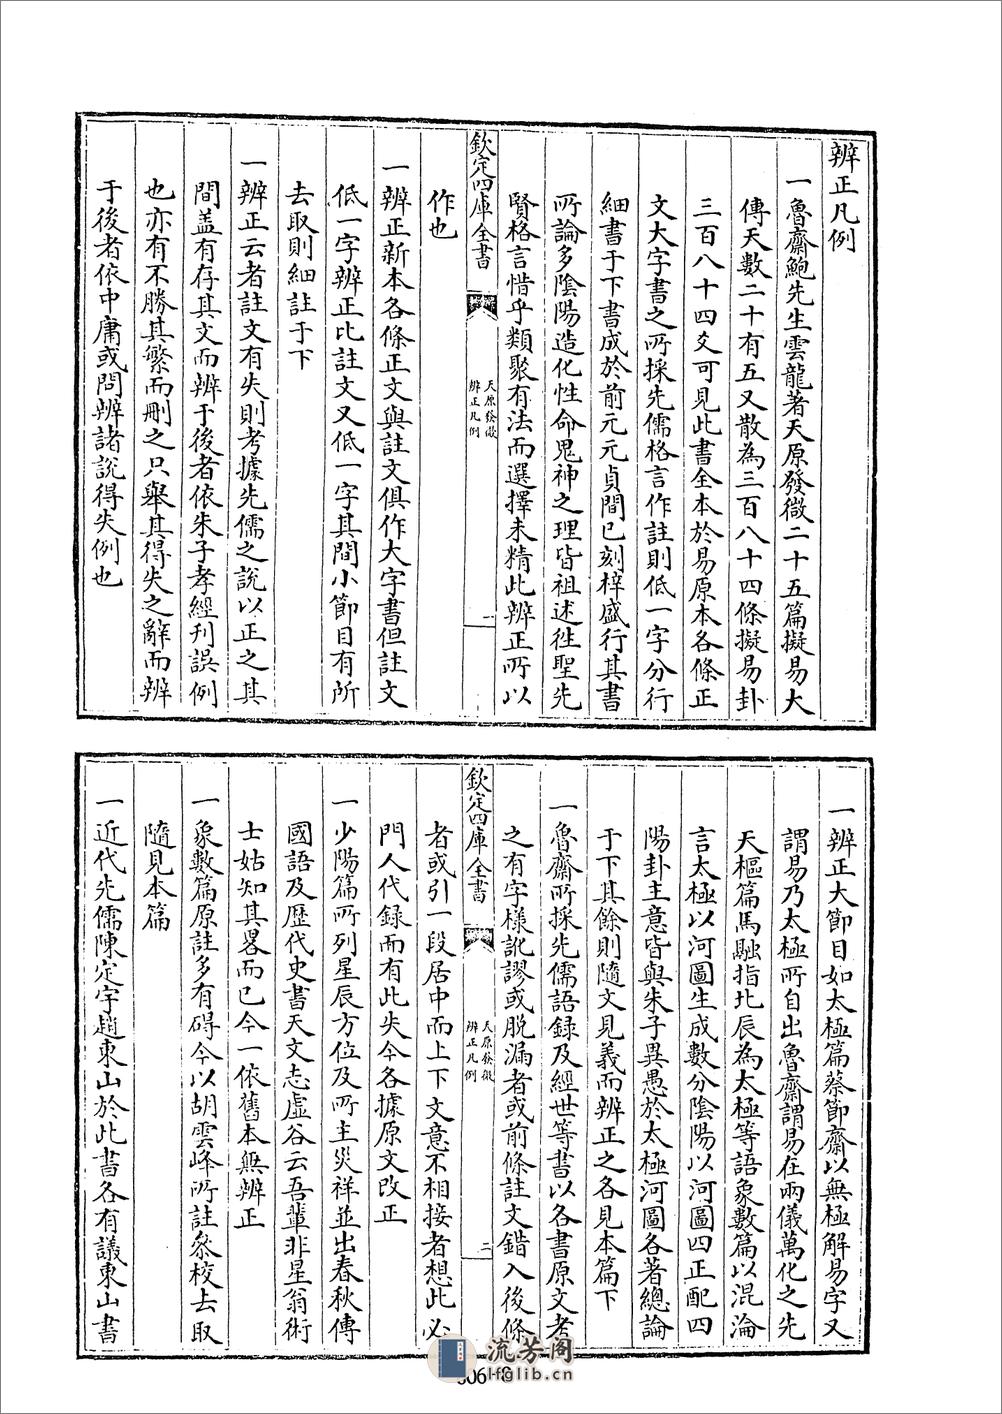 辨正凡例
一魯齋鮑先生雲龍著天原發微二十五篇擬易大
傳天數二十有五又散為三百八十四條擬易卦
三百八十四爻可見此書全本於易原本各條正
文大字書之所採先儒格言作註則低一字分行
細書于下書成於前元元貞間已刻梓盛行其書
所論多陰陽造化性命鬼神之理皆祖述徃聖先
賢格言惜乎類聚有法而選擇未精此辨正所以
欽定四庫全書
天原發微
辨正凡例
一
作也
一辨正新本各條正文與註文俱作大字書但註文
低一字辨正比註文又低一字其間小節目有所
去取則細註于下
一辨正云者註文有失則考據先儒之說以正之其
間盖有存其文而辨于後者依朱子孝經刊誤例
也亦有不勝其繁而刪之只舉其得失之辭而辨
于後者依中庸或問辨諸說得失例也
一辨正大節目如太極篇蔡節齋以無極解易字又
謂易乃太極所自出魯齋謂易在兩儀萬化之先
天樞篇馬融指北辰為太極等語象數篇以混淪
言太極以河圖生成數分陰陽以河圖四正配四
陽卦主意皆與朱子異愚於太極河圖各著總論
于下其餘則隨文見義而辨正之各見本篇下
一魯齋所採先儒語録及經世等書以各書原文考
之有字樣訛謬或脫漏者或前條註文錯入後條
欽定四庫全書
天原發微
辨正凡例
二
者或引一段居中而上下文意不相接者想此必
門人代録而有此失今各據原文改正
一少陽篇所列星辰方位及所主災祥並出春秋傳
國語及歷代史書天文志虛谷云吾輩非星翁術
士姑知其畧而已今一依舊本無辨正
一象數篇原註多有碍今以胡雲峰所註叅校去取
隨見本篇
一近代先儒陳定宇趙東山於此書各有議東山書
流芳阁
lfglib.cn